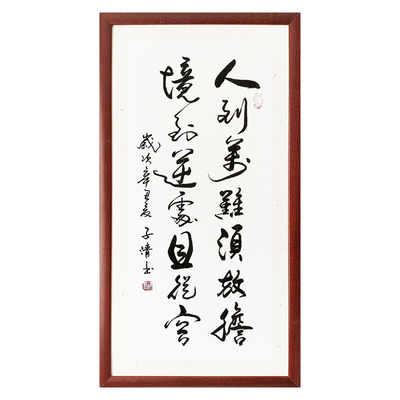 人到萬難須放膽
境到逆處且從容
歲次辛丑夏 子